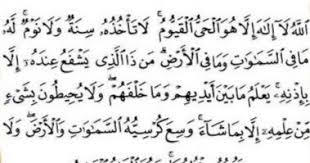 ٱللَّهُ لَآ إِلَٰهَ إِلَّا هُوَ ٱلۡحَيُّ ٱلۡقَيُّومُۚ لَا تَأۡخُذُهُۥ سِنَةٞ وَلَا نَوۡمٞۚ لَّهُۥ
مَا فِي ٱلسَّمَٰوَٰتِ وَمَا فِي ٱلۡأَرۡضِۗ مَن ذَا ٱلَّذِي يَشۡفَعُ عِندَهُۥٓ إِلَّا
بِإِذۡنِهِۦۚ يَعۡلَمُ مَا بَيۡنَ أَيۡدِيهِمۡ وَمَا خَلۡفَهُمۡۖ وَلَا يُحِيطُونَ بِشَيۡءٖ
مِّنۡ عِلۡمِهِۦٓ إِلَّا بِمَا شَآءَۚ وَسِعَ كُرۡسِيُّهُ ٱلسَّمَٰوَٰتِ وَٱلۡأَرۡضَۖ وَلَا